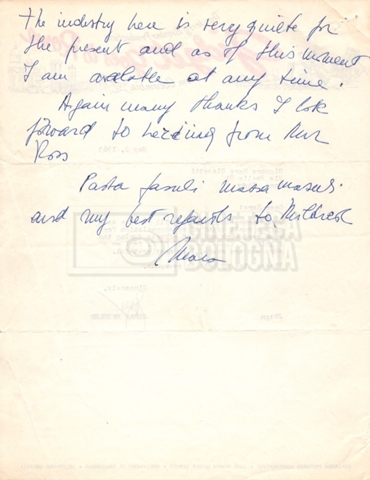 The industry here is very quite for
the present and as of this moment
I am available at any time.
Again many thanks I lok
forward to hearing from Mr
Ross
Pasta fasuli
and my best regards to Mildred
Mara
CINETECA
BOLOGNA